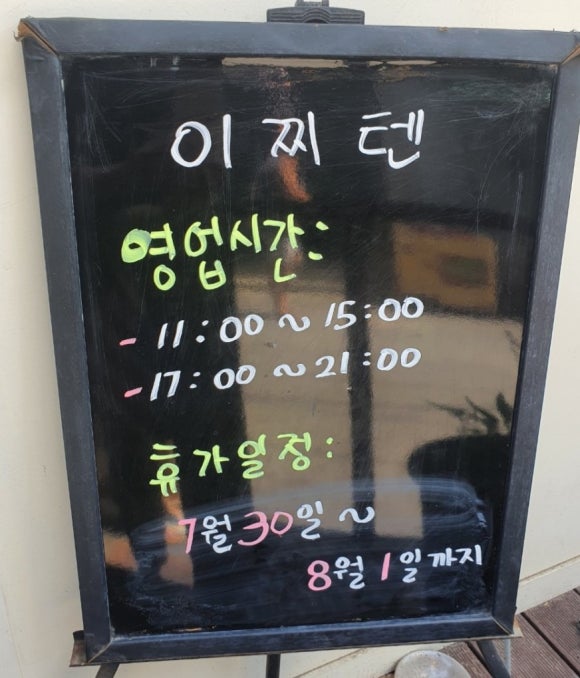 이찌텐
영업시간:
- 11:00 ~ 15:00
- 17:00 ~ 21:00
휴가일정:
7월 30일 ~
8월 1일까지